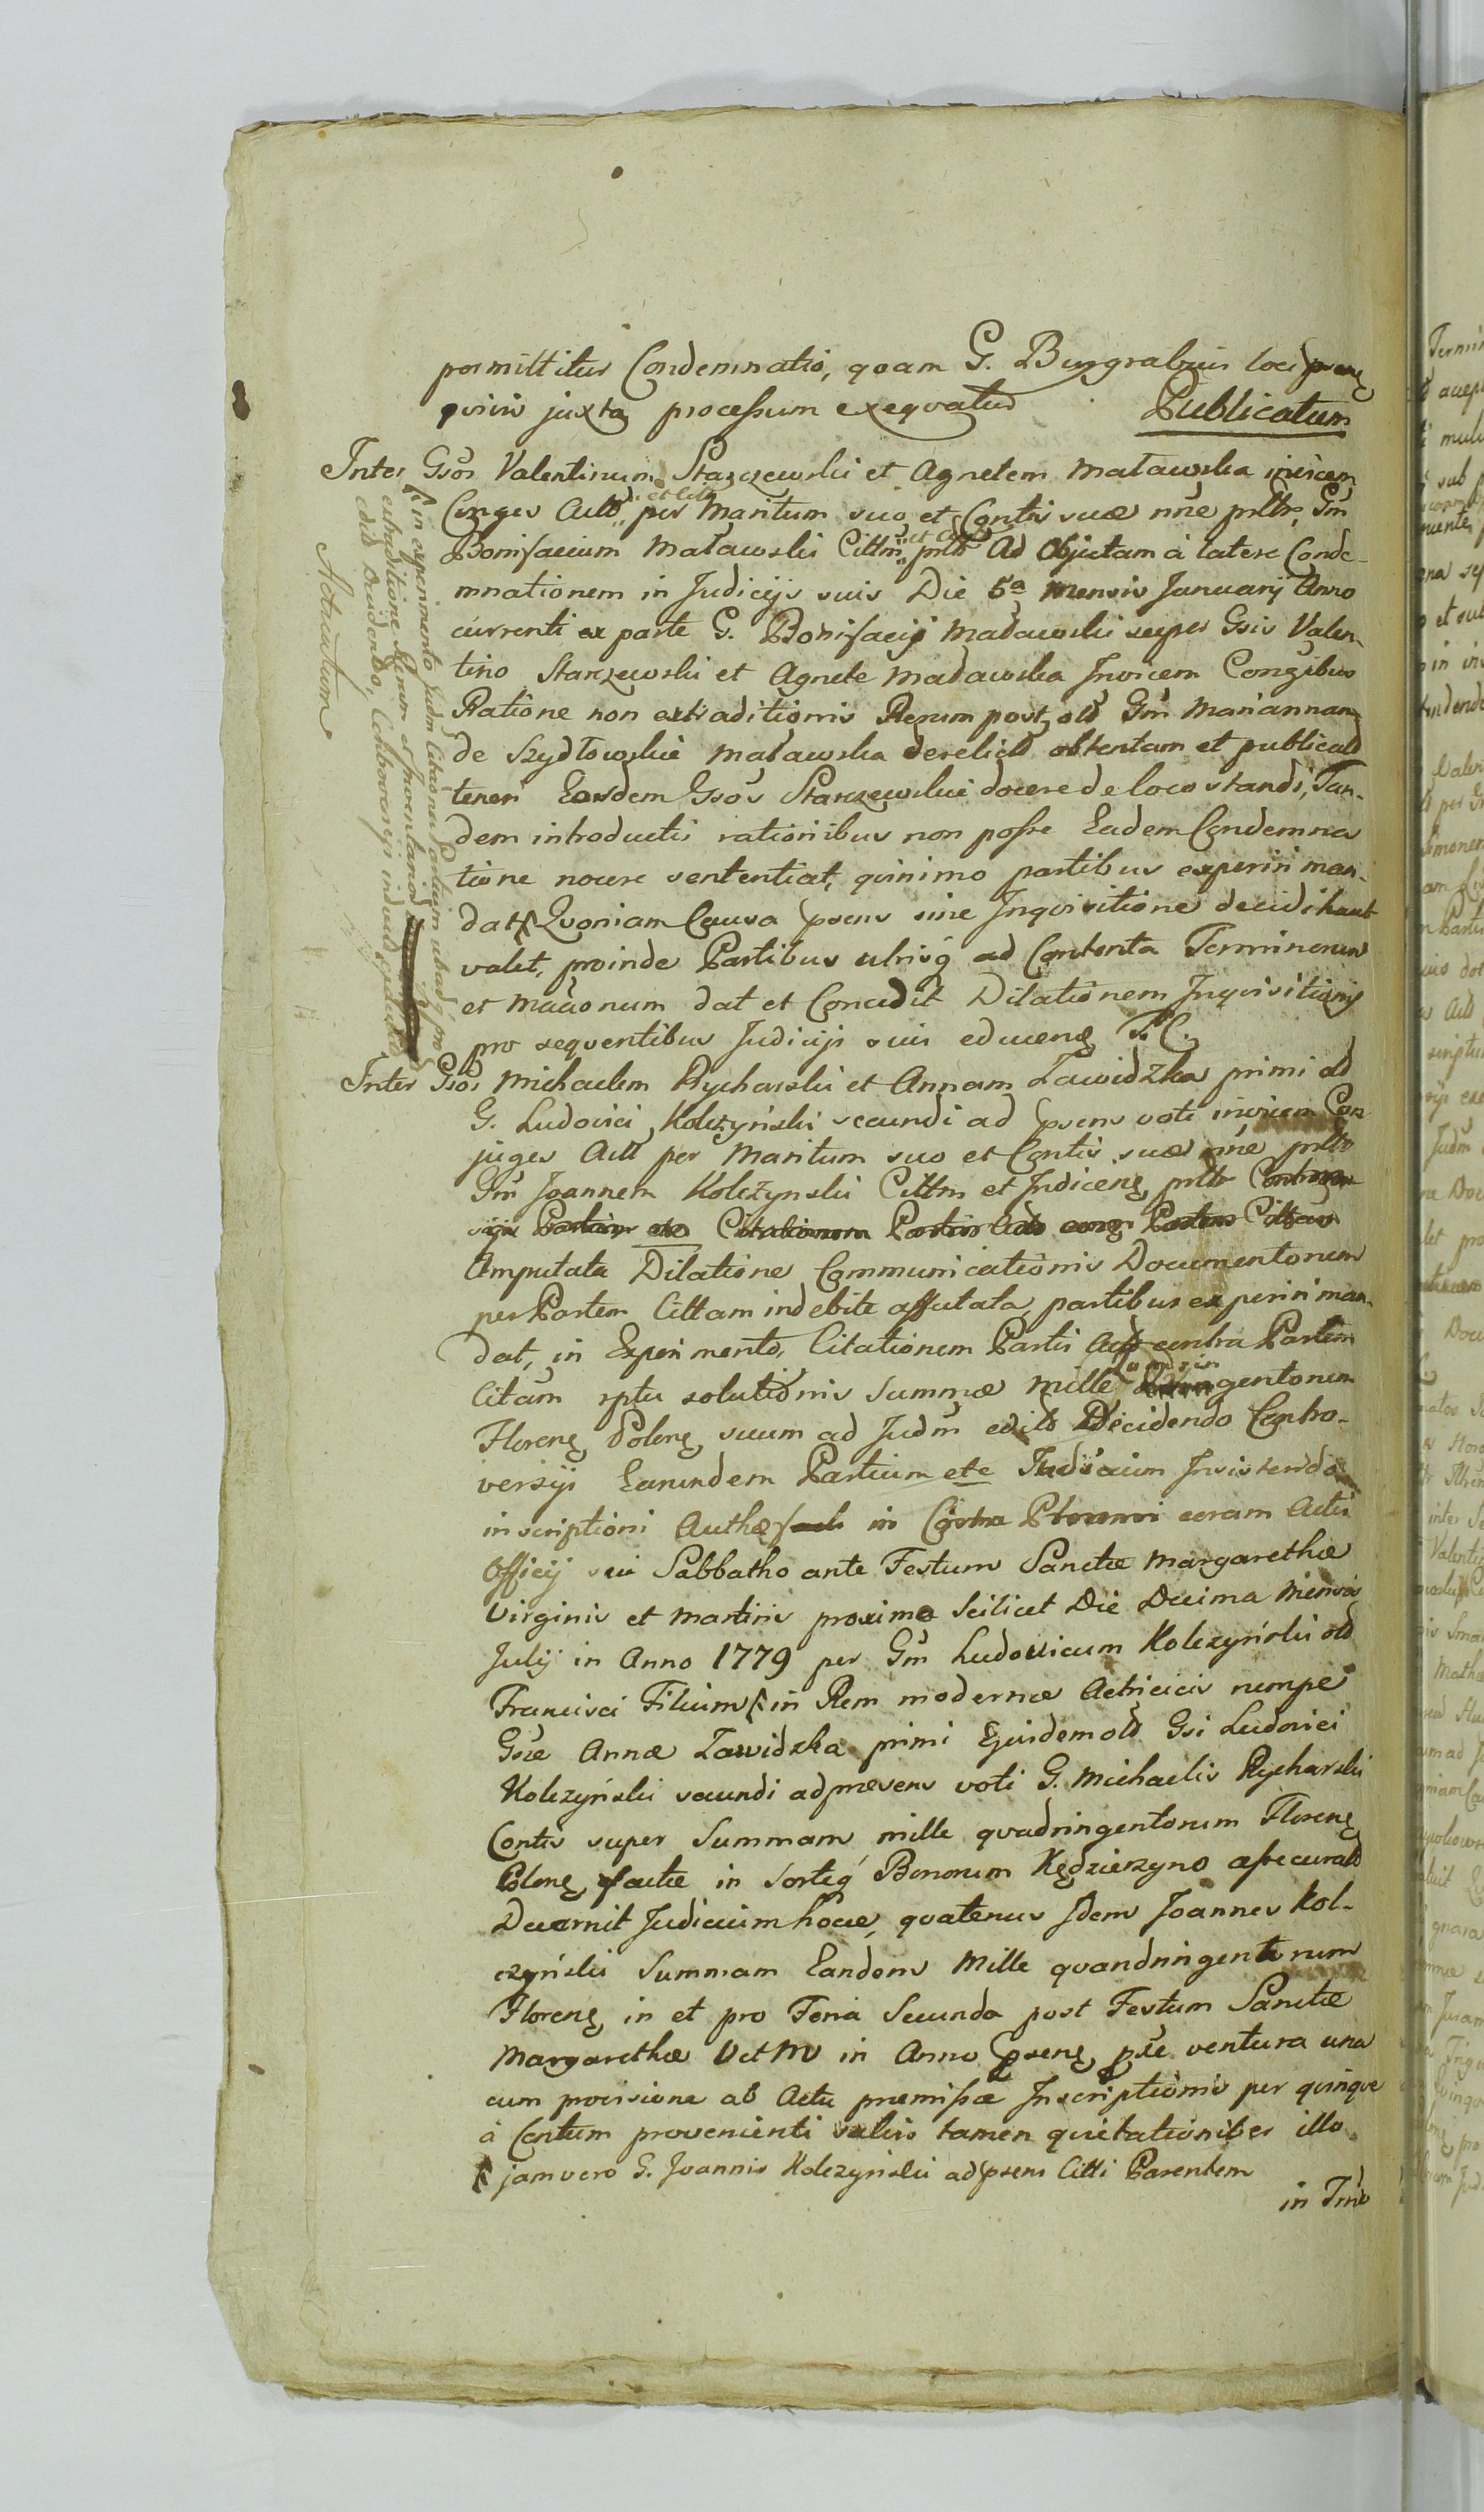 permittitur Condemnatio, quam G. Burgrabius loci psens
quivis juxta processum exequatur Publicatum
Inter Gsos Valentinum Starzewski et Agnetem Maławska invicem
Conges Actt et Citt per Maritum suo et Contis suæ nne prltt, Gm
Bonifacium Maławski Cittm et Act prltt Ad Objectam à latere Conde-
mnationem in Judicijs suis Die 5a Mensis Januarij Anno
currenti ex parte G. Bonifacij Maławski super Gsis Valen-
tino Starzewski et Agnete Maławska Invicem Congibus
Ratione non extraditionis Rerum post olt Gm Mariannam
de Szydłowskie Maławska derelict obtentam et publicatt
teneri Eosdem Gsos Starzewskie docere de loco standi, Tan-
dem introductis rationibus non posse Eadem Condemna
tione nocere sententiat, quinimo partibus experiri man-
dat Quoniam Causa psens sine Inquisitione decidi haut
valet, proinde Partibus utrisq ad Contenta Terminorum
et Mattonum dat et Concedit Dilationem Inquisitionis
pro sequentibus Judicijs suis educens T. C.
in experimento Judm Citaons Partium utarq pro
extraditione Rerum et Inventariot
edit Decidendo, Controversijs
Actuatum
Inter Gsos Michaelem Rycharski et Annam Zawidzka primi olt
G. Ludovici Kolczyński secundi ad psens voti invicem Con-
juges Actt per Maritum suo et Contis suæ nne prltt
Gm Joannem Kolczynski Cittm et Indicens prltt Controver-
sijs Partium etc Citationem Partis Act cong Partem Cittam
Amputata Dilatione Communicationis Documentorum
per Partem Cittam indebite affectata, partibus experiri man-
dat, in Experimento, Citationem Partis Act contra Partem
Citam rptu solutionis Summæ Mille quadringentorum
Florens Polons suum ad Judm edit Decidendo Contro-
versijs Earundem Partium etc Judicium Insistendo
inscriptioni Authæ in Castro coram Actis
Officij sui Sabbatho ante Festum Sanctæ Margarethæ
Virginis et Martiris proximo Scilicet Die Decima Mensis
Julij in Anno 1779 per Gm Ludovicum Kolczyński olt
Francisci Filium in Rem modernæ Actricis nempe
Gsæ Annæ Zawidzka primi Ejusdem olt Gsi Ludovici
Kolczyński secundi ad præsens voti G. Michaelis Rycharski
Contis super Summam mille quadringentorum Florens
Polons factæ in Sorteq Bonorum Kędzierzyno assecuratt
Decernit Judicium hocce, quatenus Idem Joannes Kol-
czyński Summam Eandem Mille quandringentorum
Florens in et pro Feria Secunda post Festum Sanctæ
Margarethæ V et M in Anno psens pxe ventura una
cum provisione ab Actu præmissæ Inscriptionis per quinque
à Centum provenienti salvis tamen quietationibus illo
jam vero G. Joannis Kolczyński ad psens Citti Parentem
in Tmo